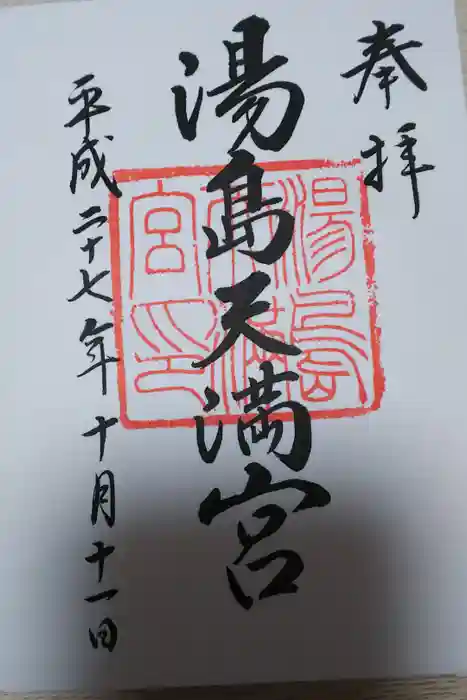 奉拝
湯島天満宮
平成二十七年十月十一日
湯島
天満
宮印